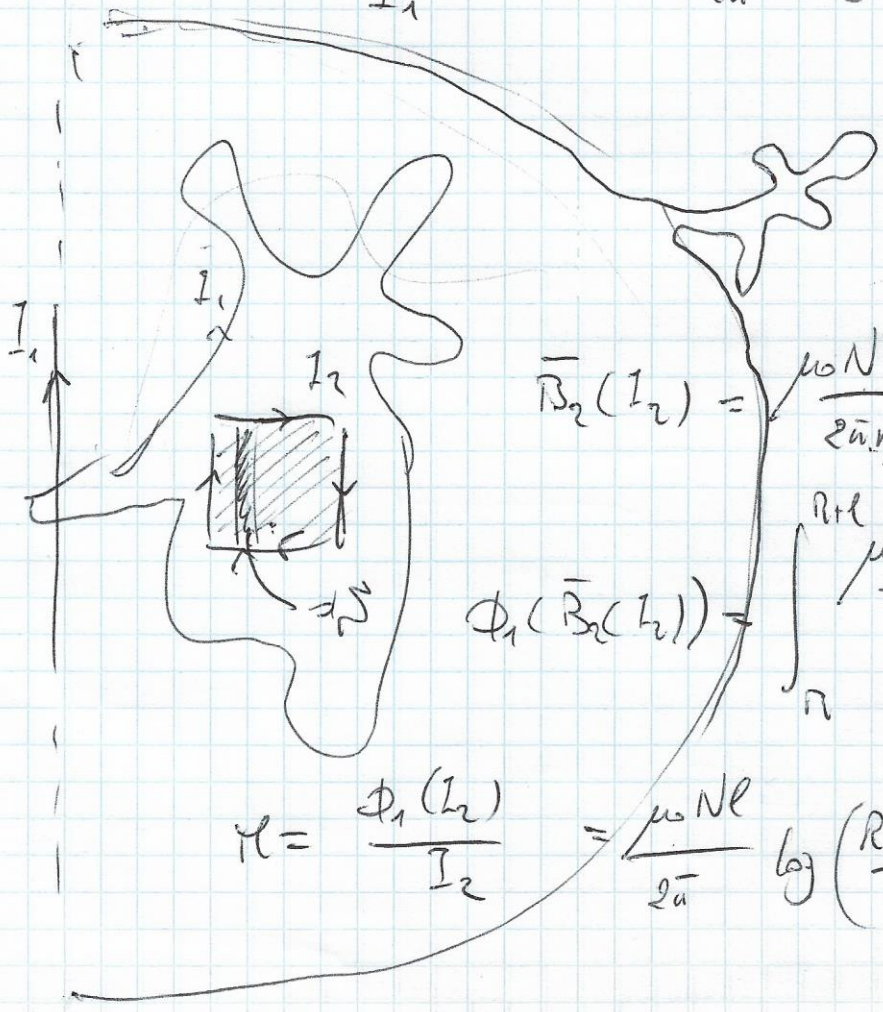 I₁
I₁
I₁
I₂
B̄₂(I₂) = μ₀N / 2π
dS
Φ₁(B̄₂(I₂)) = ∫ R+l
M = Φ₁(I₂) / I₂ = μ₀Nl / 2π log(R